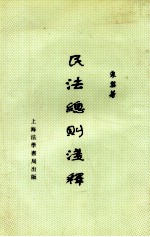 朱鼒著
民法總則淺釋
上海法學書局出版